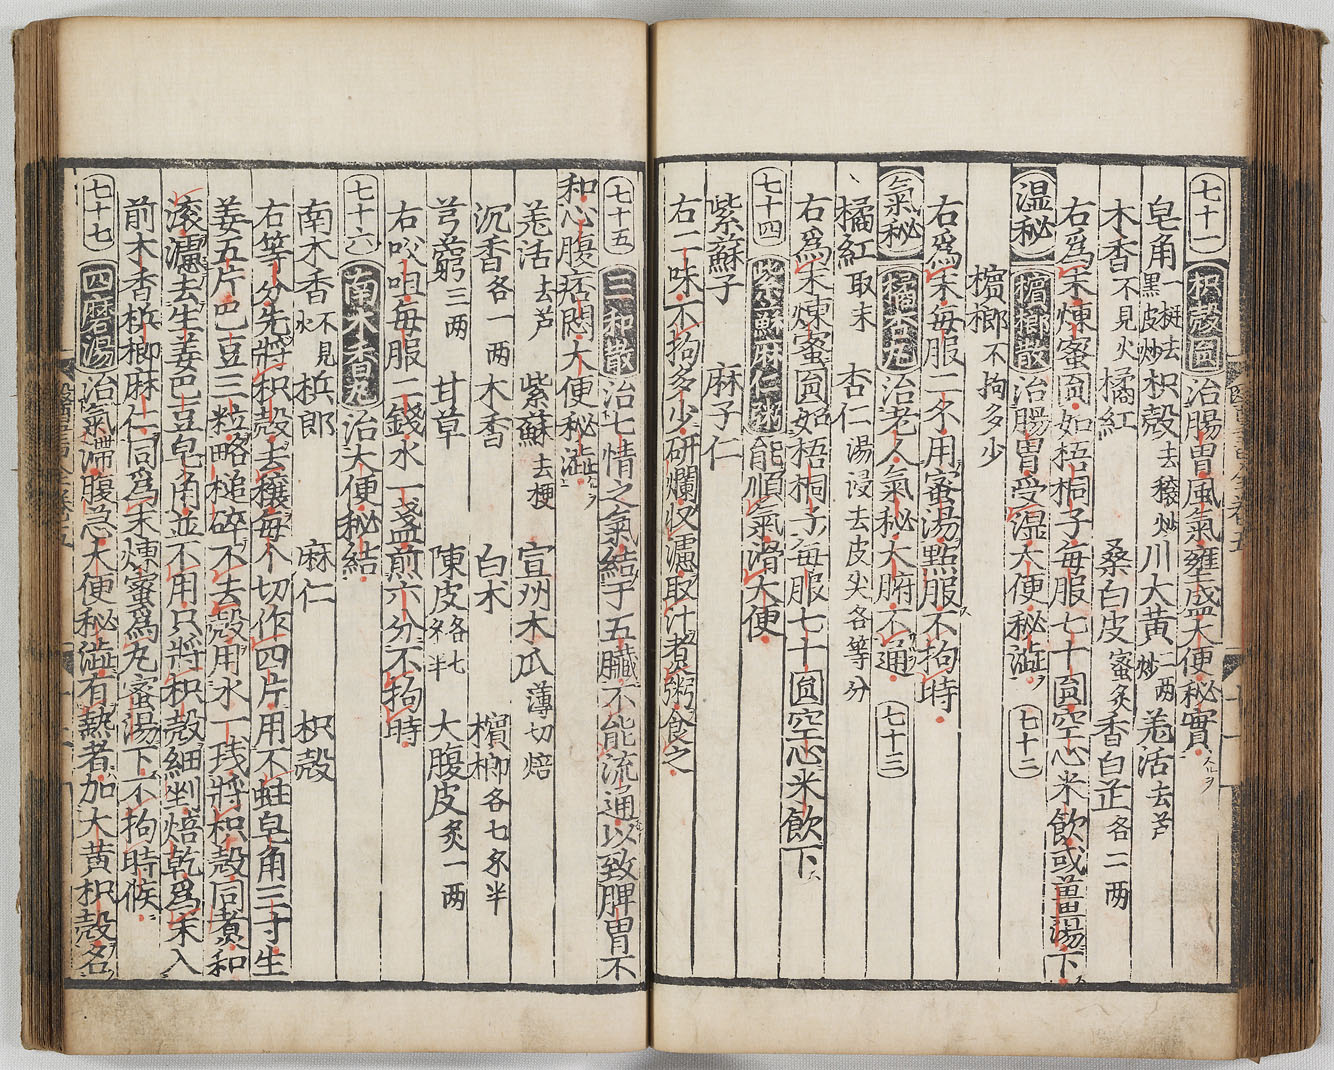 七十一 枳殼圓 治腸胃風氣壅盛大便秘實
皂角一挺去黑皮炒 枳殼去穣炒 川大黄二两炒 羌活去芦
木香不見火 橘紅 桑白皮蜜炙 香白芷各二两
右爲末煉蜜圓如梧桐子每服七十圓空心米飲或薑湯下
温秘 檳榔散 治腸胃受湿大便秘澁 七十二
檳榔不拘多少
右爲末每服二个用蜜湯點服不拘時
氣秘 橘杏丸 治老人氣秘大腑不通 七十三
橘紅取末 杏仁湯浸去皮尖各等分
右爲末煉蜜圓如梧桐子每服七十圓空心米飲下
七十四 紫蘇麻仁粥 能順氣滑大便
紫蘇子 麻子仁
右二味不拘多少研爛水濾取汁煮粥食之
七十五 三和散 治七情之氣結于五臟不能流通以致脾胃不
和心腹痞悶大便秘澁
羗活去芦 紫蘇去梗 宣州木瓜薄切焙
沉香各一两 木香 白术 檳榔各七个半
芎藭三两 甘草 陳皮各七个半 大腹皮炙一两
右㕮咀每服二錢水一盞煎六分不拘時
七十六 南木香丸 治大便秘結
南木香不見火 梹郎 麻仁 枳殼
右等分先將枳殼去穰每个切作四片用不蛀皂角三寸生
姜五片巴豆三粒略搥碎不去殼用水一戔將枳殼同煮和
滚濾去生姜巴豆皂角並不用只將枳殼細剉焙乾爲末入
前木香梹榔麻仁同爲末煉蜜爲丸蜜湯下一不拘時候
七十七 四磨湯 治氣滯腹急大便秘澁有熱者加大黄枳殼名